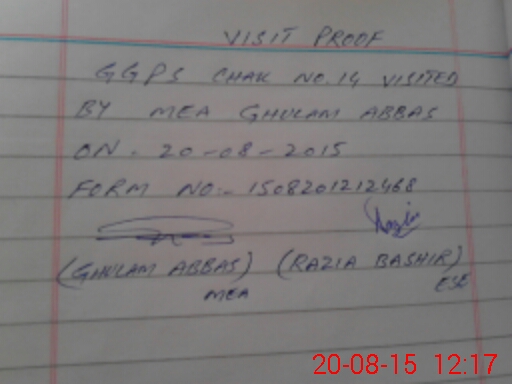 VISIT PROOF
GGPS CHAK NO.14 VISITED
BY MEA GHULAM ABBAS
ON - 20-08-2015
FORM NO:- 1508201212468
Razia
(GHULAM ABBAS) (RAZIA BASHIR)
MEA ESE
20-08-15 12:17